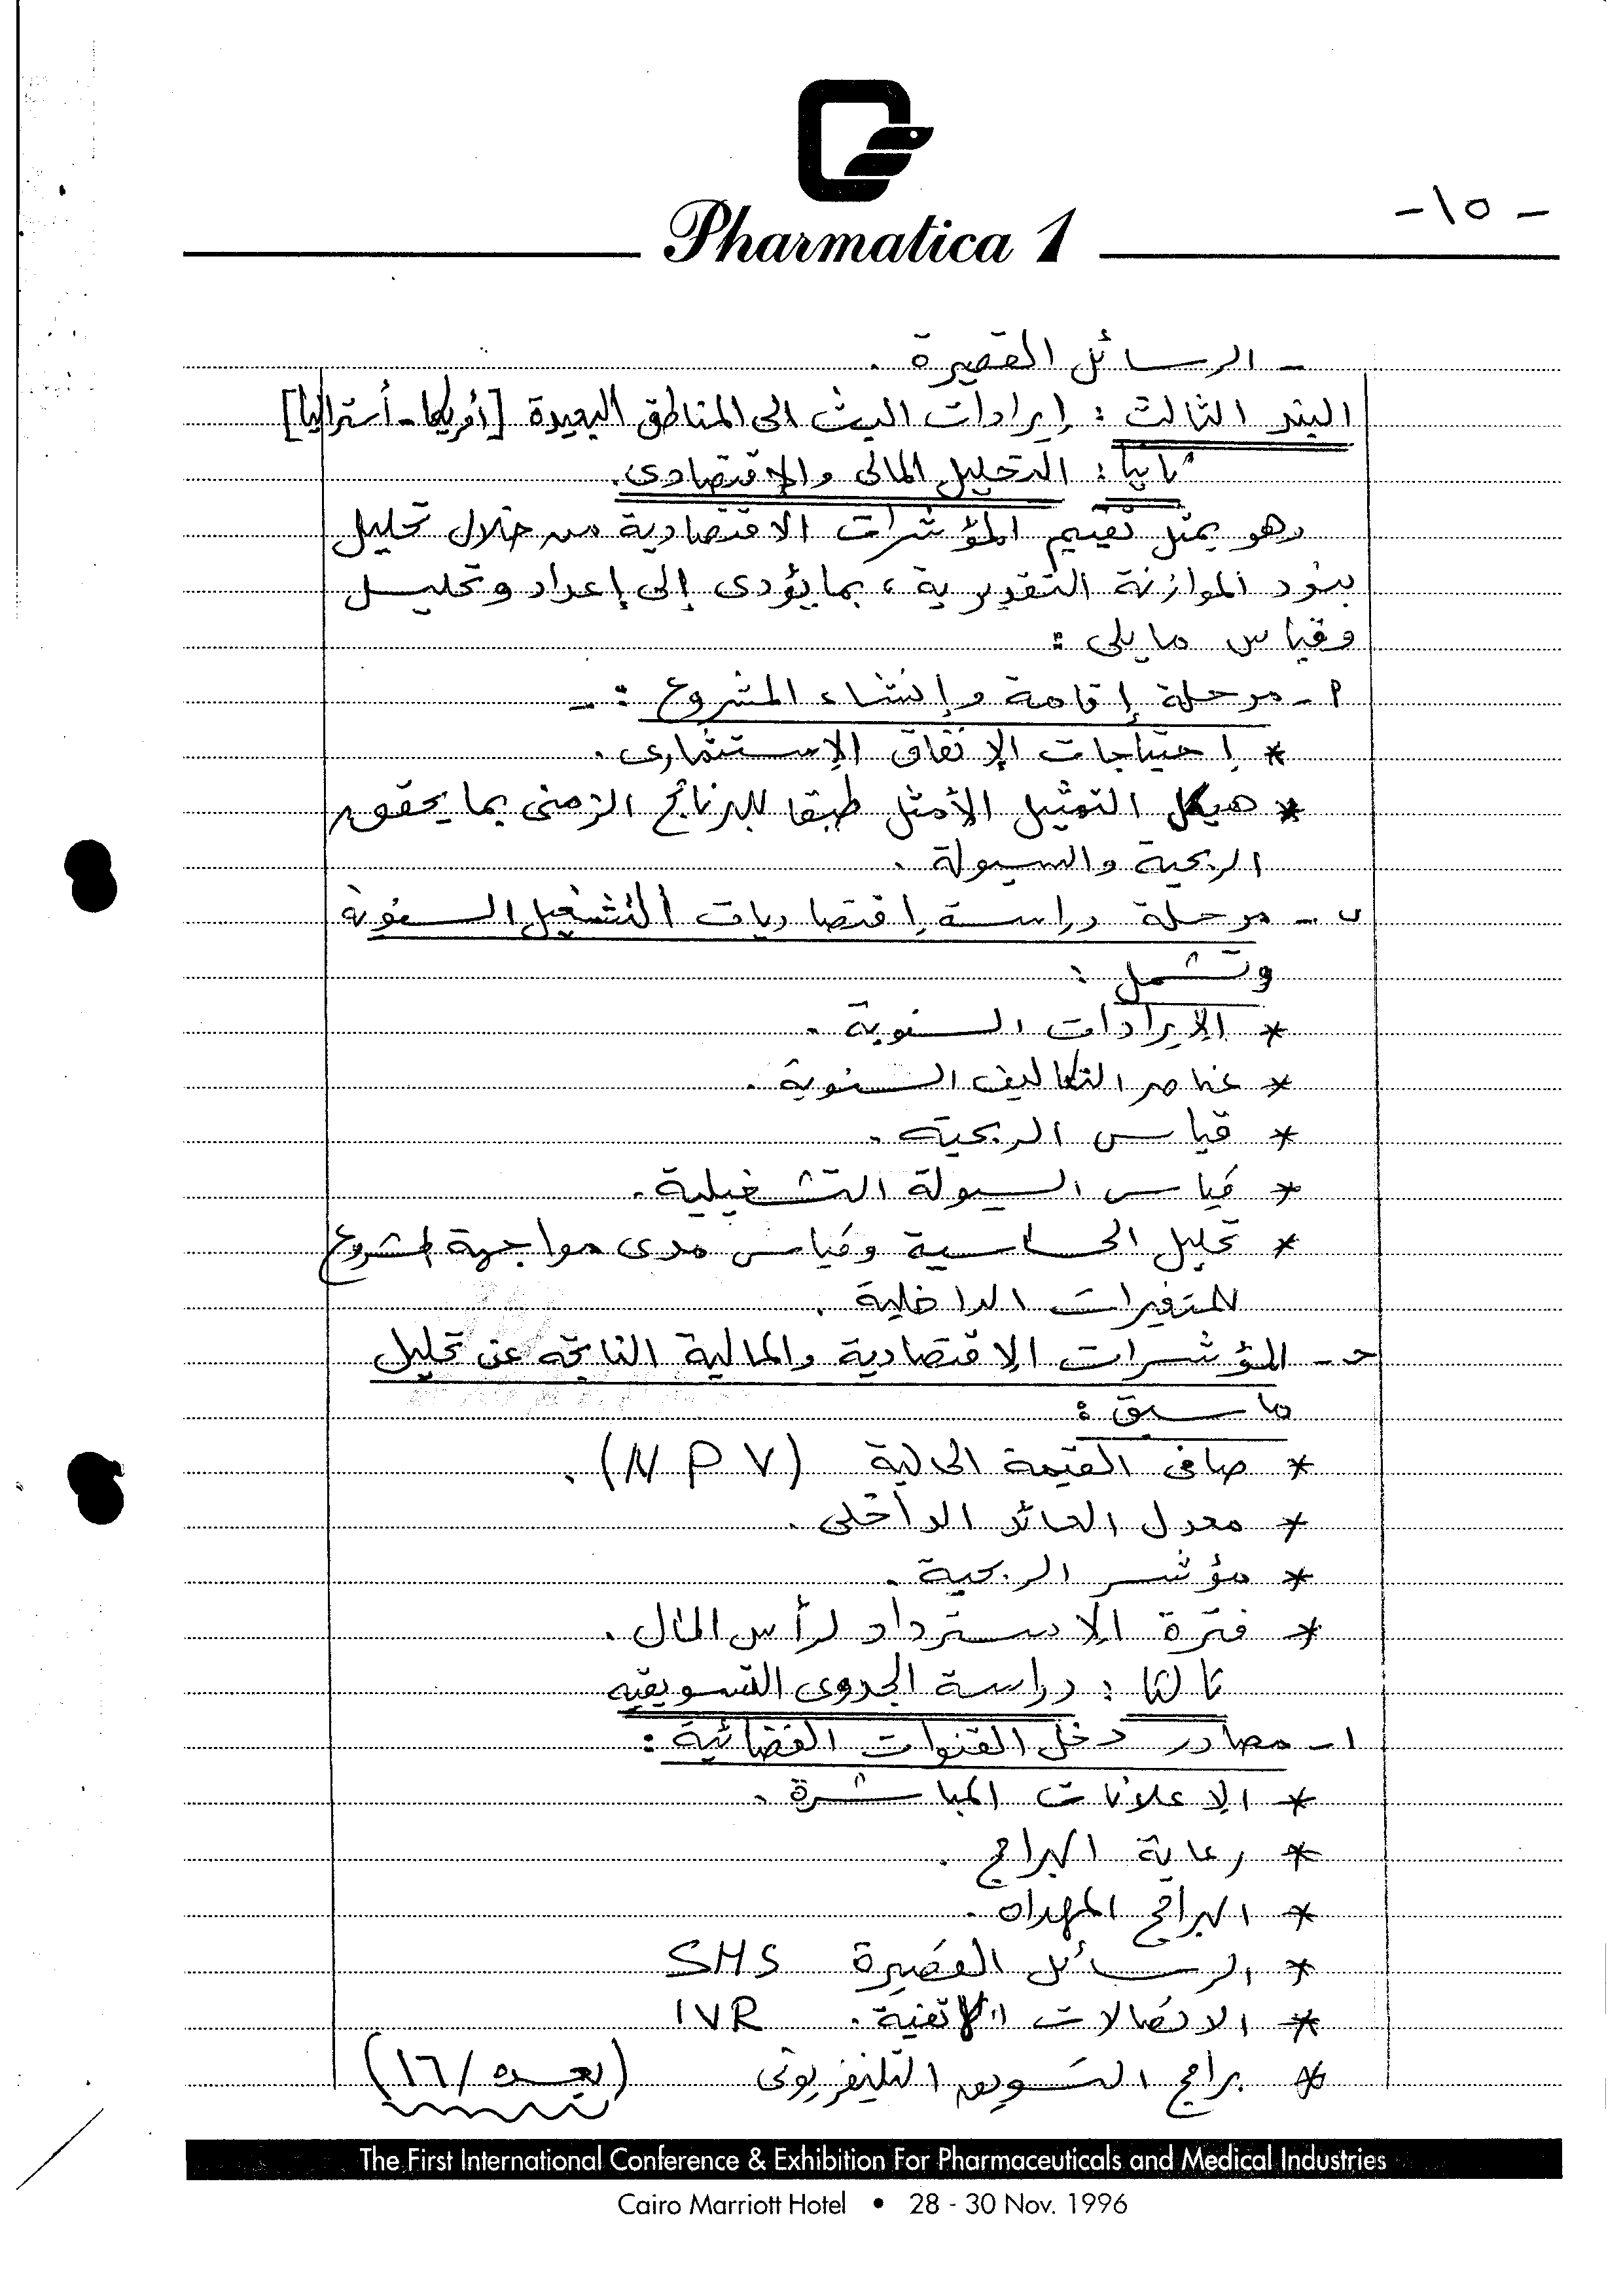 Pharmatica 1
- ١٥ -
- الرسائل القصيرة .
البند الثالث : إيرادات البث الى المناطق البعيدة [أفريكا - أستراليا]
ثانياً : التحليل المالى والاقتصادى .
وهو يمثل تقييم المؤشرات الاقتصادية من خلال تحليل
بنود الموازنة التقديرية ، بما يؤدى إلى إعداد وتحليل
وقياس ما يلى :
أ - مرحلة إقامة وإنشاء المشروع : -
* إحتياجات الإنفاق الاستثمارى .
* هيكل التمثيل الأمثل طبقا للبرنامج الزمنى بما يحقق
الربحية والسيولة .
ب - مرحلة دراسة إقتصاديات التشغيل السنوية
وتشمل :
* الإيرادات السنوية .
* عناصر التكاليف السنوية .
* قياس الربحية .
* قياس السيولة التشغيلية .
* تحليل الحساسية وقياس مدى مواجهة المشروع
للمتغيرات الداخلية .
حـ - المؤشرات الاقتصادية والمالية الناتجة عن تحليل
ما سبق :
* صافى القيمة الحالية (NPV) .
* معدل العائد الداخلى .
* مؤشر الربحية .
* فترة الإسترداد لرأس المال .
ثالثا : دراسة الجدوى التسويقية
١ - مصادر دخل القنوات الفضائية :
* الاعلانات المباشرة .
* رعاية البرامج .
* البرامج المهداه .
* الرسائل القصيرة SMS
* الاتصالات الهاتفية . IVR
* برامج التسويق التليفزيونى (بعده / ١٦)
The First International Conference & Exhibition For Pharmaceuticals and Medical Industries
Cairo Marriott Hotel • 28 - 30 Nov. 1996